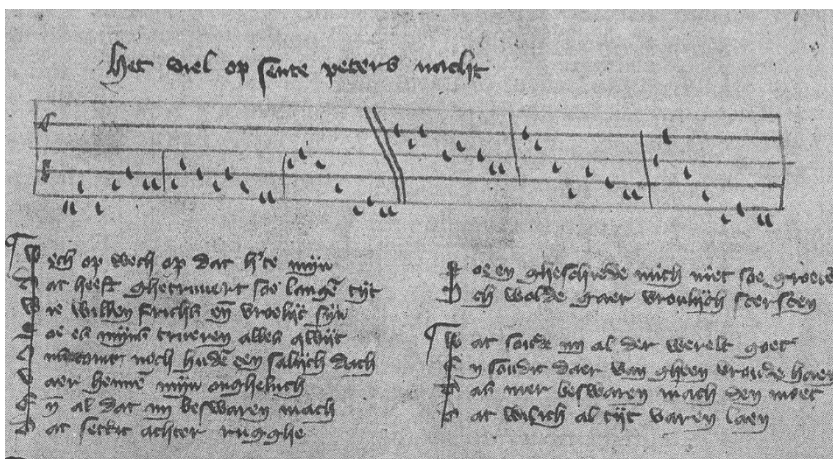 Het viel op sente peters nacht
Wech op wech op dat h'te mijn
Dat heeft ghetruert soe lange tijt
We willen frisch en vroelijc sijn
ende mijns trueren alles qwijt
mi comt noch hude een salich dach
daer henne mijn ongheluch
En al dat mi beswaren mach
Dat settic achter rugghe
en ghescheede mich niet soe
Ich walde gaer sterften
Wat soude mi al der werelt goet
En soudic daer van gheen vroude haen
mer beswaren mach den moet
Dat willich al tijt varen laen